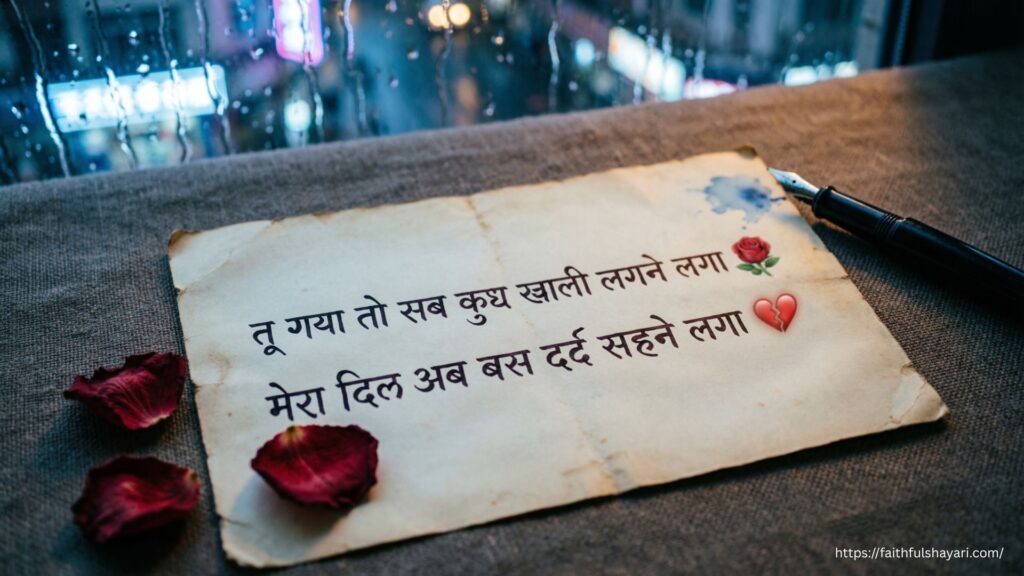 तू गया तो सब कुध खाली लगने लगा 🌹
मेरा दिल अब बस दर्द सहने लगा 💔
https://faithfulshayari.com/